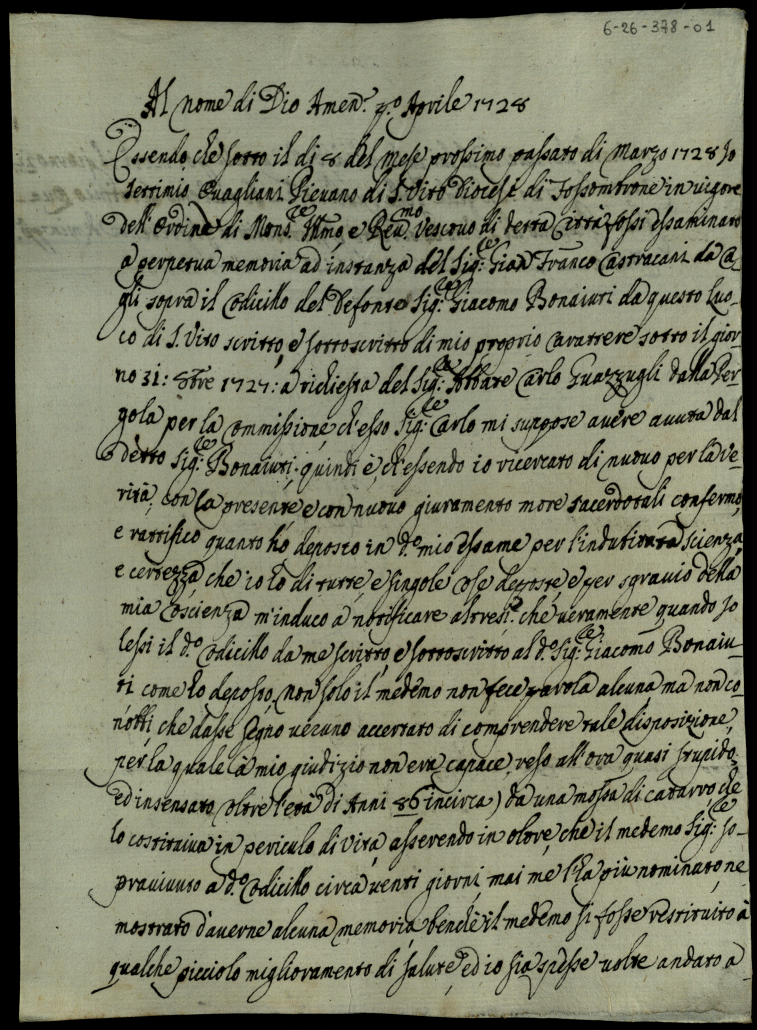 6-26-378-01
Al nome di Dio Amen. p.o Aprile 1728
Essendo che sotto il di 8 del Mese prossimo passato di Marzo 1728 Io
Settimio Guagliani Pievano di S. Vito Diocese di Fossombrone in vigore
dell'Ordine di Mons.re Ill.mo e Rev.mo Vescovo di detta Città fossi essaminato
a perpetua memoria ad instanza del Sig.re Gian Franco Castracani da Ca-
gli sopra il Codicillo del Defonto Sig.re Giacomo Bonaiuti da questo Luo-
co di S. Vito scritto, e sottoscritto di mio proprio Carattere sotto il gior-
no 31: 8bre 1727: a richiesta del Sig.re Abbate Carlo Guazzugli dalla Per-
gola per la Commissione, ch'esso Sig.re Carlo mi suppose avere avuta dal
detto Sig.re Bonaiuti. quindi è, ch'essendo io ricercato di nuovo per la ve-
rità, con la presente e con nuovo giuramento more sacerdotali confermo,
e rattifico quanto hò deposto in d.o mio essame per l'indubitata scienza,
e certezza, che io hò di tutte, e singole cose deposte, e per sgravio della
mia Coscienza m'induco a notificare altresì, che veramente quando Io
lessi il d.o Codicillo da me scritto, e sottoscritto al d.o Sig.re Giacomo Bonaiu-
ti come hò deposto, non solo il medemo non fece parola alcuna ma non co-
nobbi, che dasse segno veruno accertato di comprendere tale disposizione,
per la quale à mio giudizio non era capace, reso all'ora quasi stupido,
ed insensato (oltre l'età di Anni 86 incirca) da una mossa di catarro, che
lo costituiva in periculo di vita, asserendo in oltre, che il medemo Sig.re so-
pravivuto a d.o Codicillo circa venti giorni, mai me l'hà più nominato, ne
mostrato d'averne alcuna memoria, benche il medemo si fosse restituito à
qualche picciolo miglioramento di salute, ed io sia spesse volte andato a